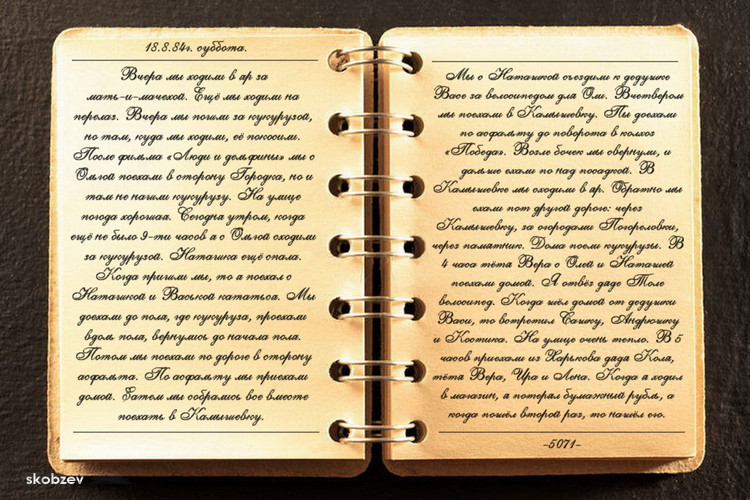 18.8.84г. суббота.
Вчера мы ходили в яр за
мать-и-мачехой. Ещё мы ходили на
перелаз. Вчера мы пошли за кукурузой,
но там, куда мы ходили, её покосили.
После фильма «Люди и дельфины» мы с
Ольгой поехали в сторону Городка, но и
там не нашли кукурузу. На улице
погода хорошая. Сегодня утром, когда
ещё не было 9-ти часов я с Ольгой сходили
за кукурузой. Наташка ещё спала.
Когда пришли мы, то я поехал с
Наташкой и Васькой кататься. Мы
доехали до поля, где кукуруза, проехали
вдоль поля, вернулись до начала поля.
Потом мы поехали по дороге в сторону
асфальта. По асфальту мы приехали
домой. Затем мы собрались все вместе
поехать в Камышевку.
Мы с Наташкой съездили к дедушке
Васе за велосипедом для Оли. Вчетвером
мы поехали в Камышевку. Мы доехали
по асфальту до поворота в колхоз
«Победа». Возле бочек мы свернули, и
дальше ехали по над посадкой. В
Камышевке мы сходили в яр. Обратно мы
ехали по другой дороге: через
Камышевку, за огородами Погореловки,
через памятник. Дома поели кукурузы. В
4 часа тётя Вера с Олей и Наташей
поехали домой. Я отвёз дяде Толе
велосипед. Когда шёл домой от дедушки
Васи, то встретил Сашку, Андрюшку
и Костика. На улице очень тепло. В 5
часов приехали из Харькова дядя Коля,
тётя Вера, Ира и Лена. Когда я ходил
в магазин, я потерял бумажный рубль, а
когда пошёл второй раз, то нашёл его.
-5071-
skobzev